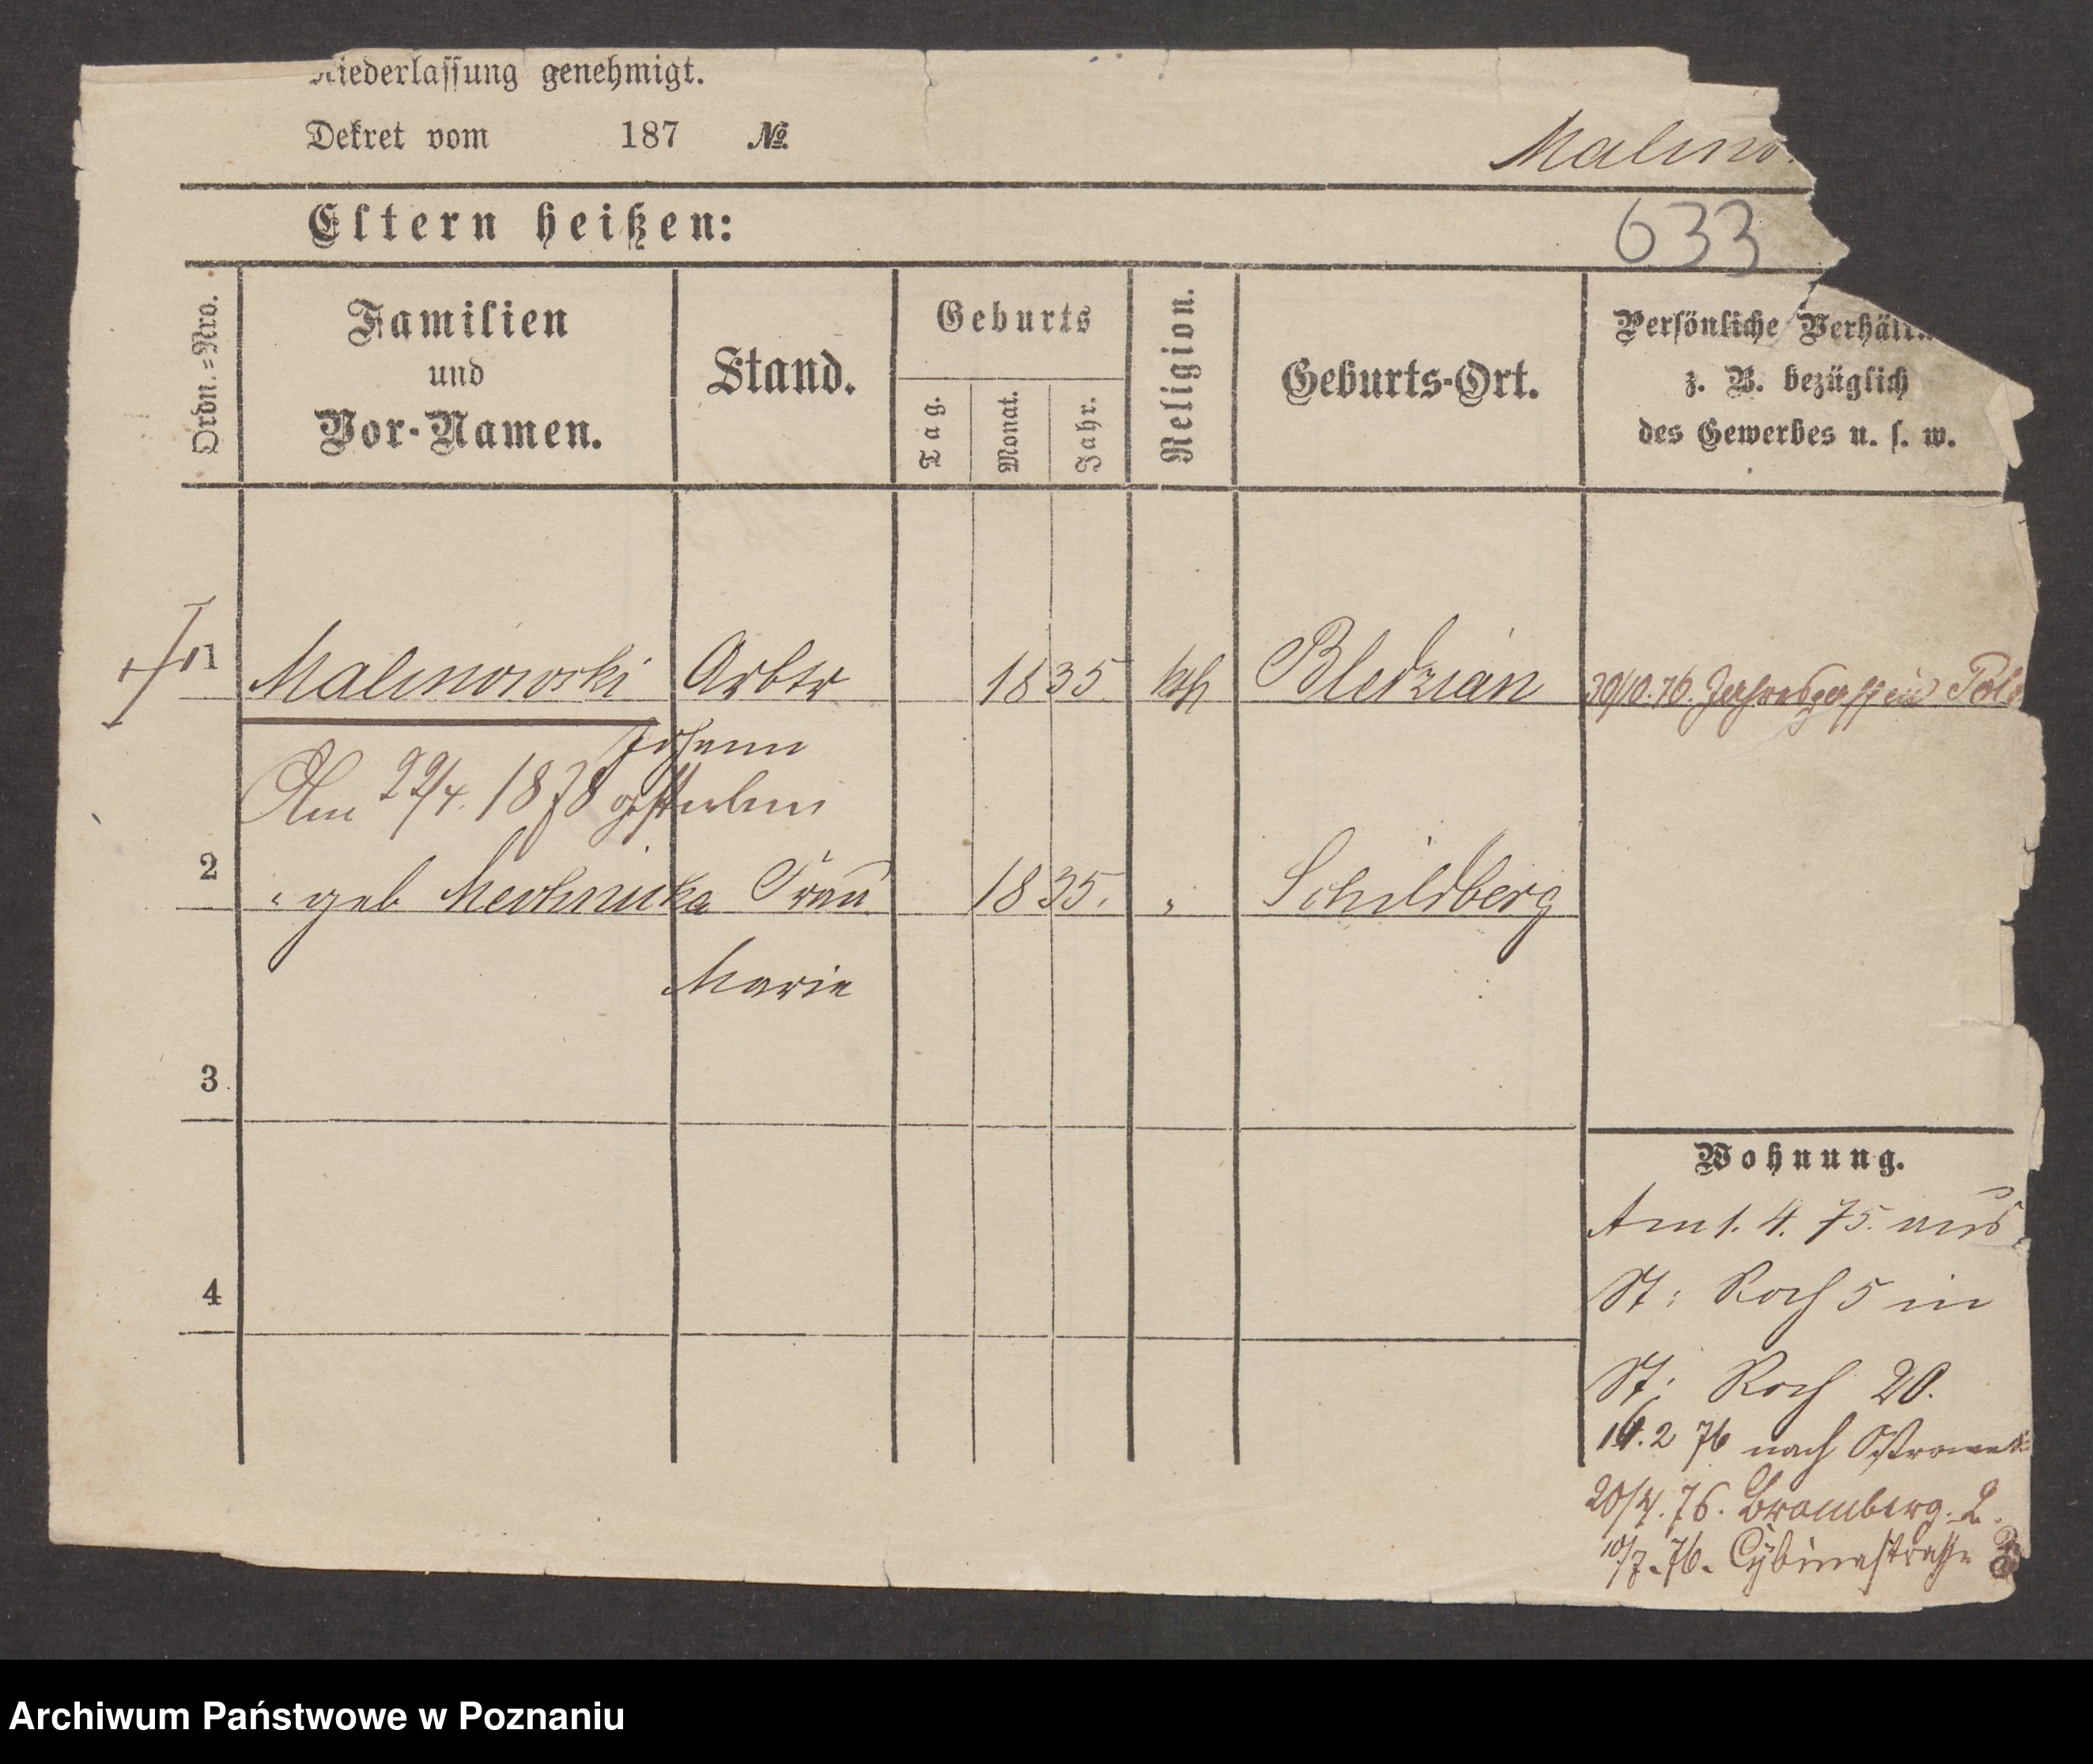 Niederlassung genehmigt.
Dekret vom 187 №
Malino
Eltern heißen:
633
Ordn.=Nro.
Familien
und
Vor-Namen.
Stand.
Geburts
Tag.
Monat.
Jahr.
Religion.
Geburts-Ort.
Persönliche Verhält
z. B. bezüglich
des Gewerbes u. s. w.
1 Malinowski Arbtr 1835. kth Bledzian 30/10.76. Pol
Johann
Am 22/4. 1878 gestorben
2 " geb Frau 1835. " Schildberg
Marie
3
4
Wohnung.
Am 1. 4. 75. aus
St: Roch 5 in
St: Roch 20.
2 76 nach
20/4. 76. Bromberg. 2.
10/7. 76. Cybinastraße
Archiwum Państwowe w Poznaniu